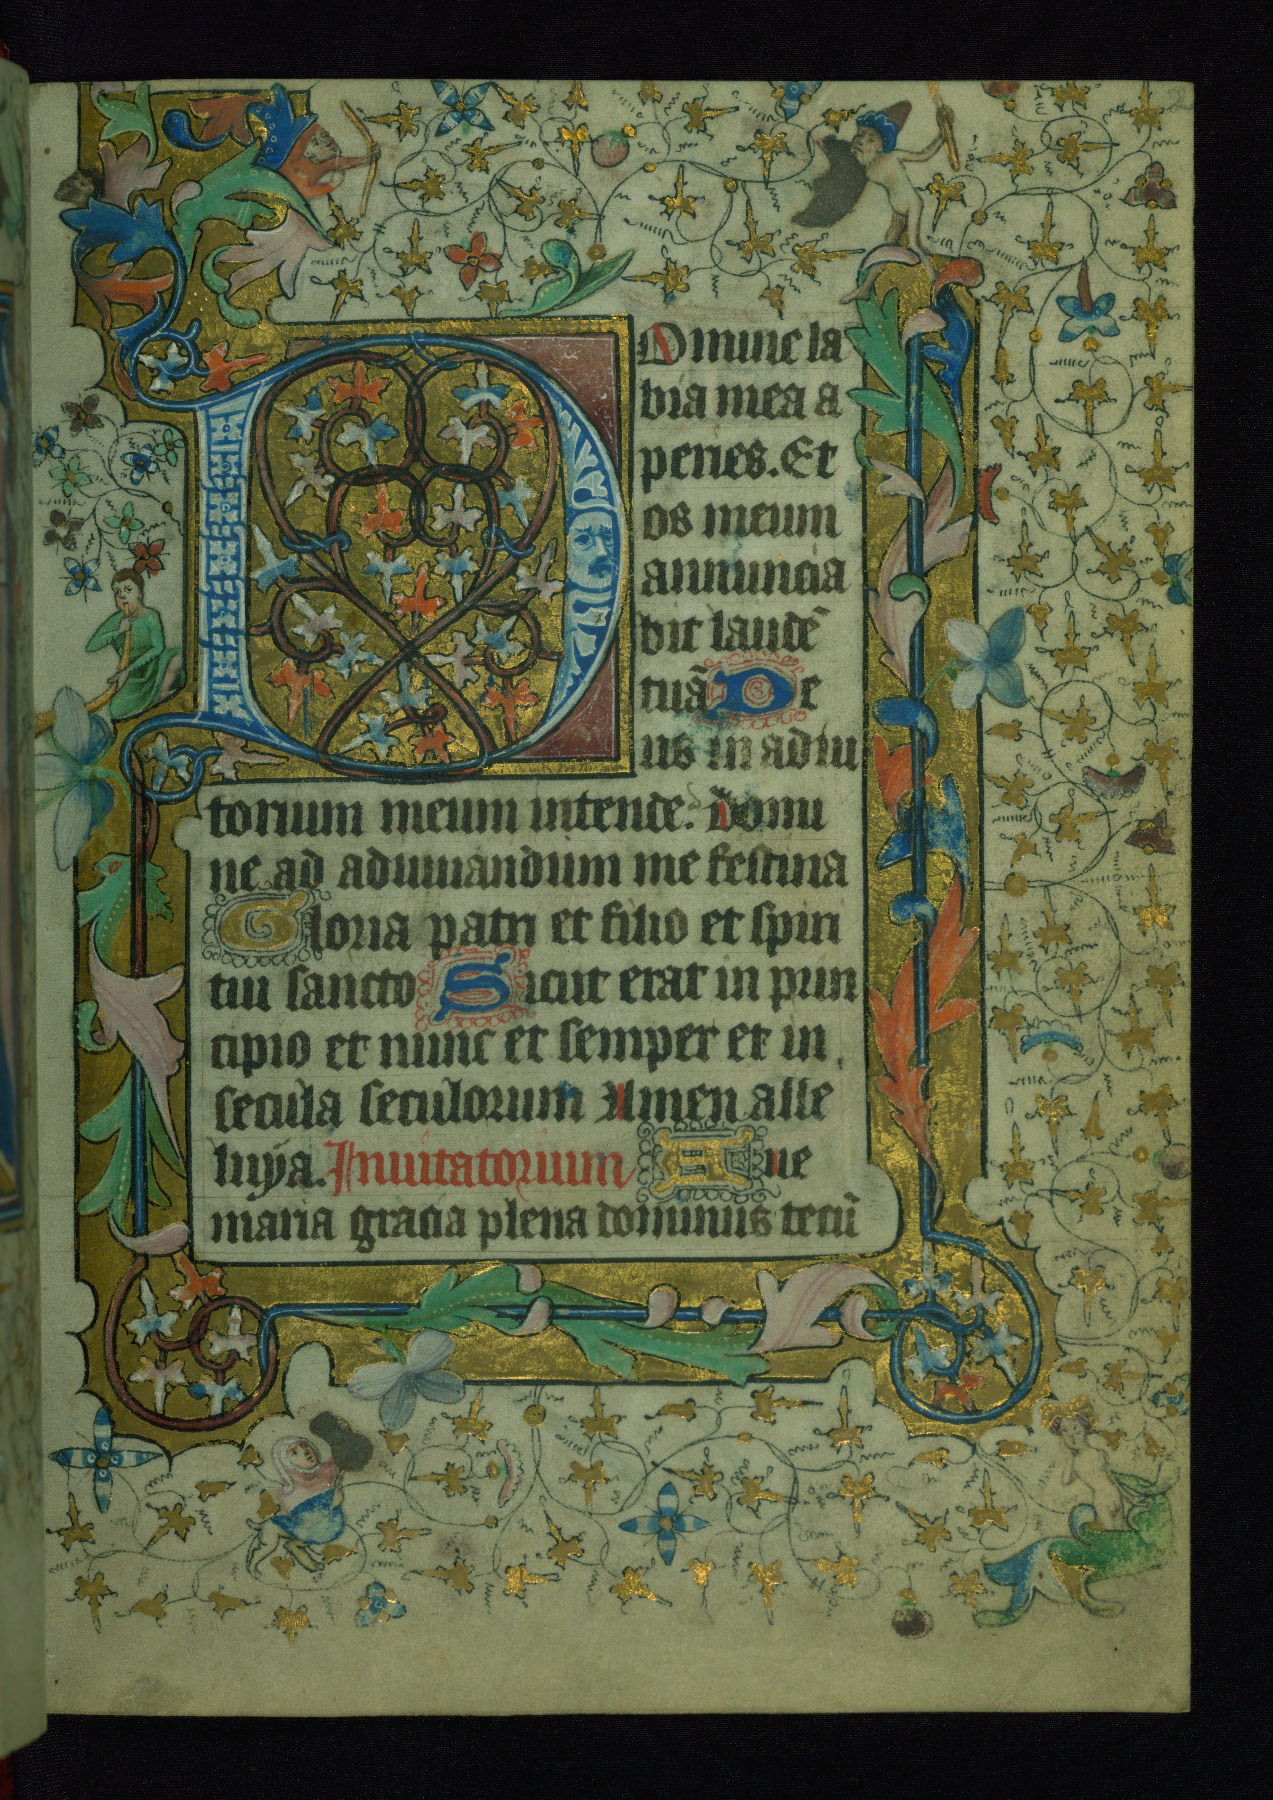 Domine la
bia mea a
peries. Et
os meum
annuncia
bit laudē
tuā De
us in adiu
torium meum intende. Domi
ne ad adiuuandum me festina
Gloria patri et filio et spiri
tui sancto Sicut erat in prin
cipio et nunc et semper et in
secula seculorum Amen alle
luya. Inuitatorium Aue
maria gracia plena dominus tecū